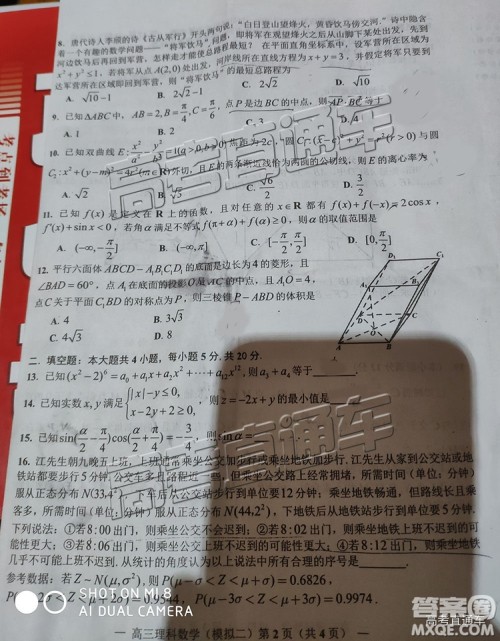 8. 唐代诗人李颀的诗《古从军行》开头两句说:“白日登山望烽火,黄昏饮马傍交河.”诗中隐含
着一个有趣的数学问题——“将军饮马”问题,即将军在观望烽火之后从山脚下某处出发,先到
河边饮马后再回到军营,怎样走才能使总路程最短?在平面直角坐标系中,设军营所在区域为
x²+y²≤1,若将军从点A(2,0)处出发,河岸线所在直线方程为x+y=3,并假定将军只要到
达军营所在区域即回到军营,则“将军饮马”的最短总路程为
A. √10−1 B. 2√2−1 C. 2√2 D. √10
9. 已知△ABC中,AB=2,B=π/4,C=π/6,点P是边BC的中点,则
A. 1 B. 2 C. 3 D. 4
10. 已知双曲线E:x²/a²−y²/b²=1(a>0,b>0)焦距为2c,圆C₁:(r>0)与圆
C₂:x²+(y−m)²=4(m∈R)外切,且E的两条渐近线恰为两圆的公切线,则E的离心率为
A. √2 B. C. √6/2 D. 3/2
11. 已知f(x)是定义在R上的函数,且对任意的x∈R都有f(x)+f(−x)=2cosx,
f′(x)+sinx<0,若角α满足不等式f(π+α)+f(α)≥0,则α的取值范围是
A. (−∞,π/2] B. (−∞,π] C. [−π/2,π/2] D. [0,π/2]
12. 平行六面体ABCD−A₁B₁C₁D₁的底面是边长为4的菱形,且
∠BAD=60°,点A₁在底面的投影O是AC的中点,且A₁O=4,
点C关于平面C₁BD的对称点为P,则三棱锥P−ABD的体积是
A. 4 B. 3√3
C. 4√3 D. 8
D₁ C₁
A₁ B₁
D C
O
A B
二、填空题:本大题共4小题,每小题5分,共20分.
13. 已知(x²−2)⁶=a₀+a₁x+a₂x²+⋯+a₁₂x¹²,则a₃+a₄等于
14. 已知实数x,y满足{|x|−y≤0, x−2y+2≥0, 则z=−2x+y的最小值是
15. 已知sin(α/2−π/4)cos(α/2+π/4)=−3/4,则sinα=
16. 江先生朝九晚五上班,上班通常乘坐公交加步行或乘坐地铁加步行.江先生从家到公交站或地
铁站都要步行5分钟.公交车多且路程近一些,但乘坐公交路上经常拥堵,所需时间(单位:分钟)
服从正态分布N(33,4²),下车后从公交站步行到单位要12分钟;乘坐地铁畅通,但路线长且乘
客多,所需时间(单位:分钟)服从正态分布N(44,2²),下地铁后从地铁站步行到单位要5分钟.
下列说法:①若8:00出门,则乘坐公交不会迟到;②若8:02出门,则乘坐地铁上班不迟到的可
能性更大;③若8:06出门,则乘坐公交上班不迟到的可能性更大;④若8:12出门,则乘坐地铁
几乎不可能上班不迟到.从统计的角度认为以上说法中所有合理的序号是
参考数据:若Z~N(μ,σ²),则P(μ−σ<Z<μ+σ)=0.6826,
P(μ−2σ<Z<μ+2σ)=0.9544,P(μ−3σ<Z<μ+3σ)=0.9974.
高三理科数学(模拟二)第2页(共4页)
高考直通车
高考直通车
SHOT ON MI 8
AI DUAL CAMERA
答案圈
高考直通车
MXQE.COM